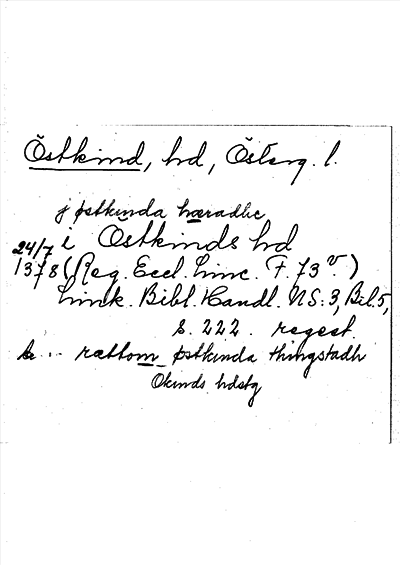 Östkind, hd, Österg. l.
j østkinda hæradhe
i Östkinds hd
24/7
1378 (Reg. Eccl. Linc. F. 73 v.)
Link. Bibl. Handl. NS: 3, Bil. 5,
s. 222. regest.
... rættom østkinda thingstadh
Ökinds hdstg